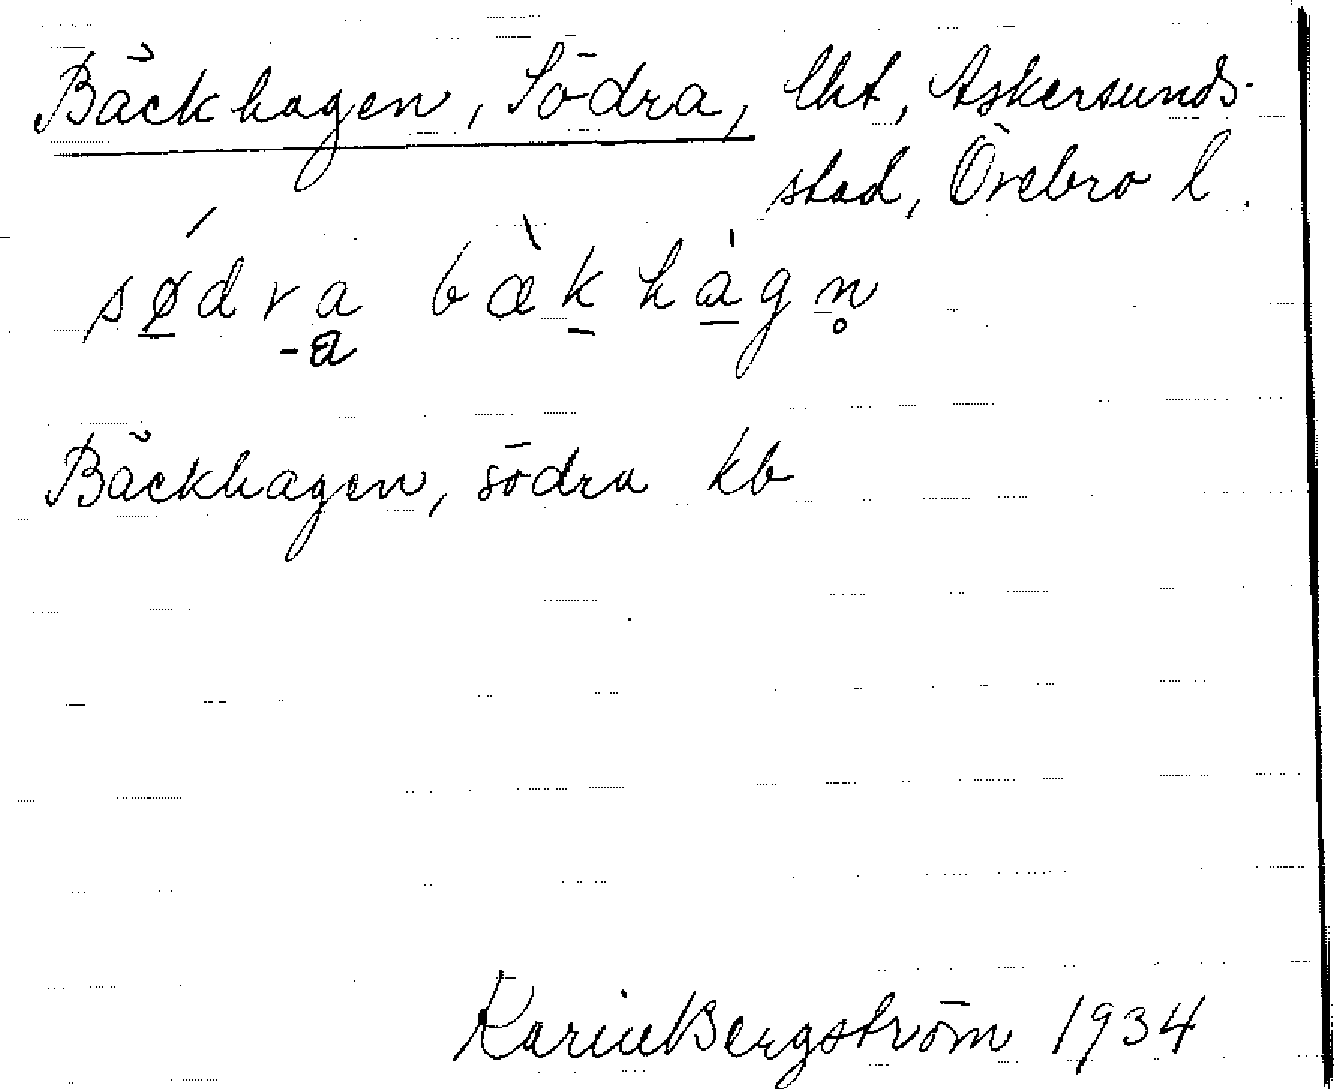 Bäckhagen, Södra, lht, Askersunds-
stad, Örebro l.
sǿ̠dra bæ̀k̠hà̠gn̥
-a
Bäckhagen, södra kb
Karin Bergström 1934